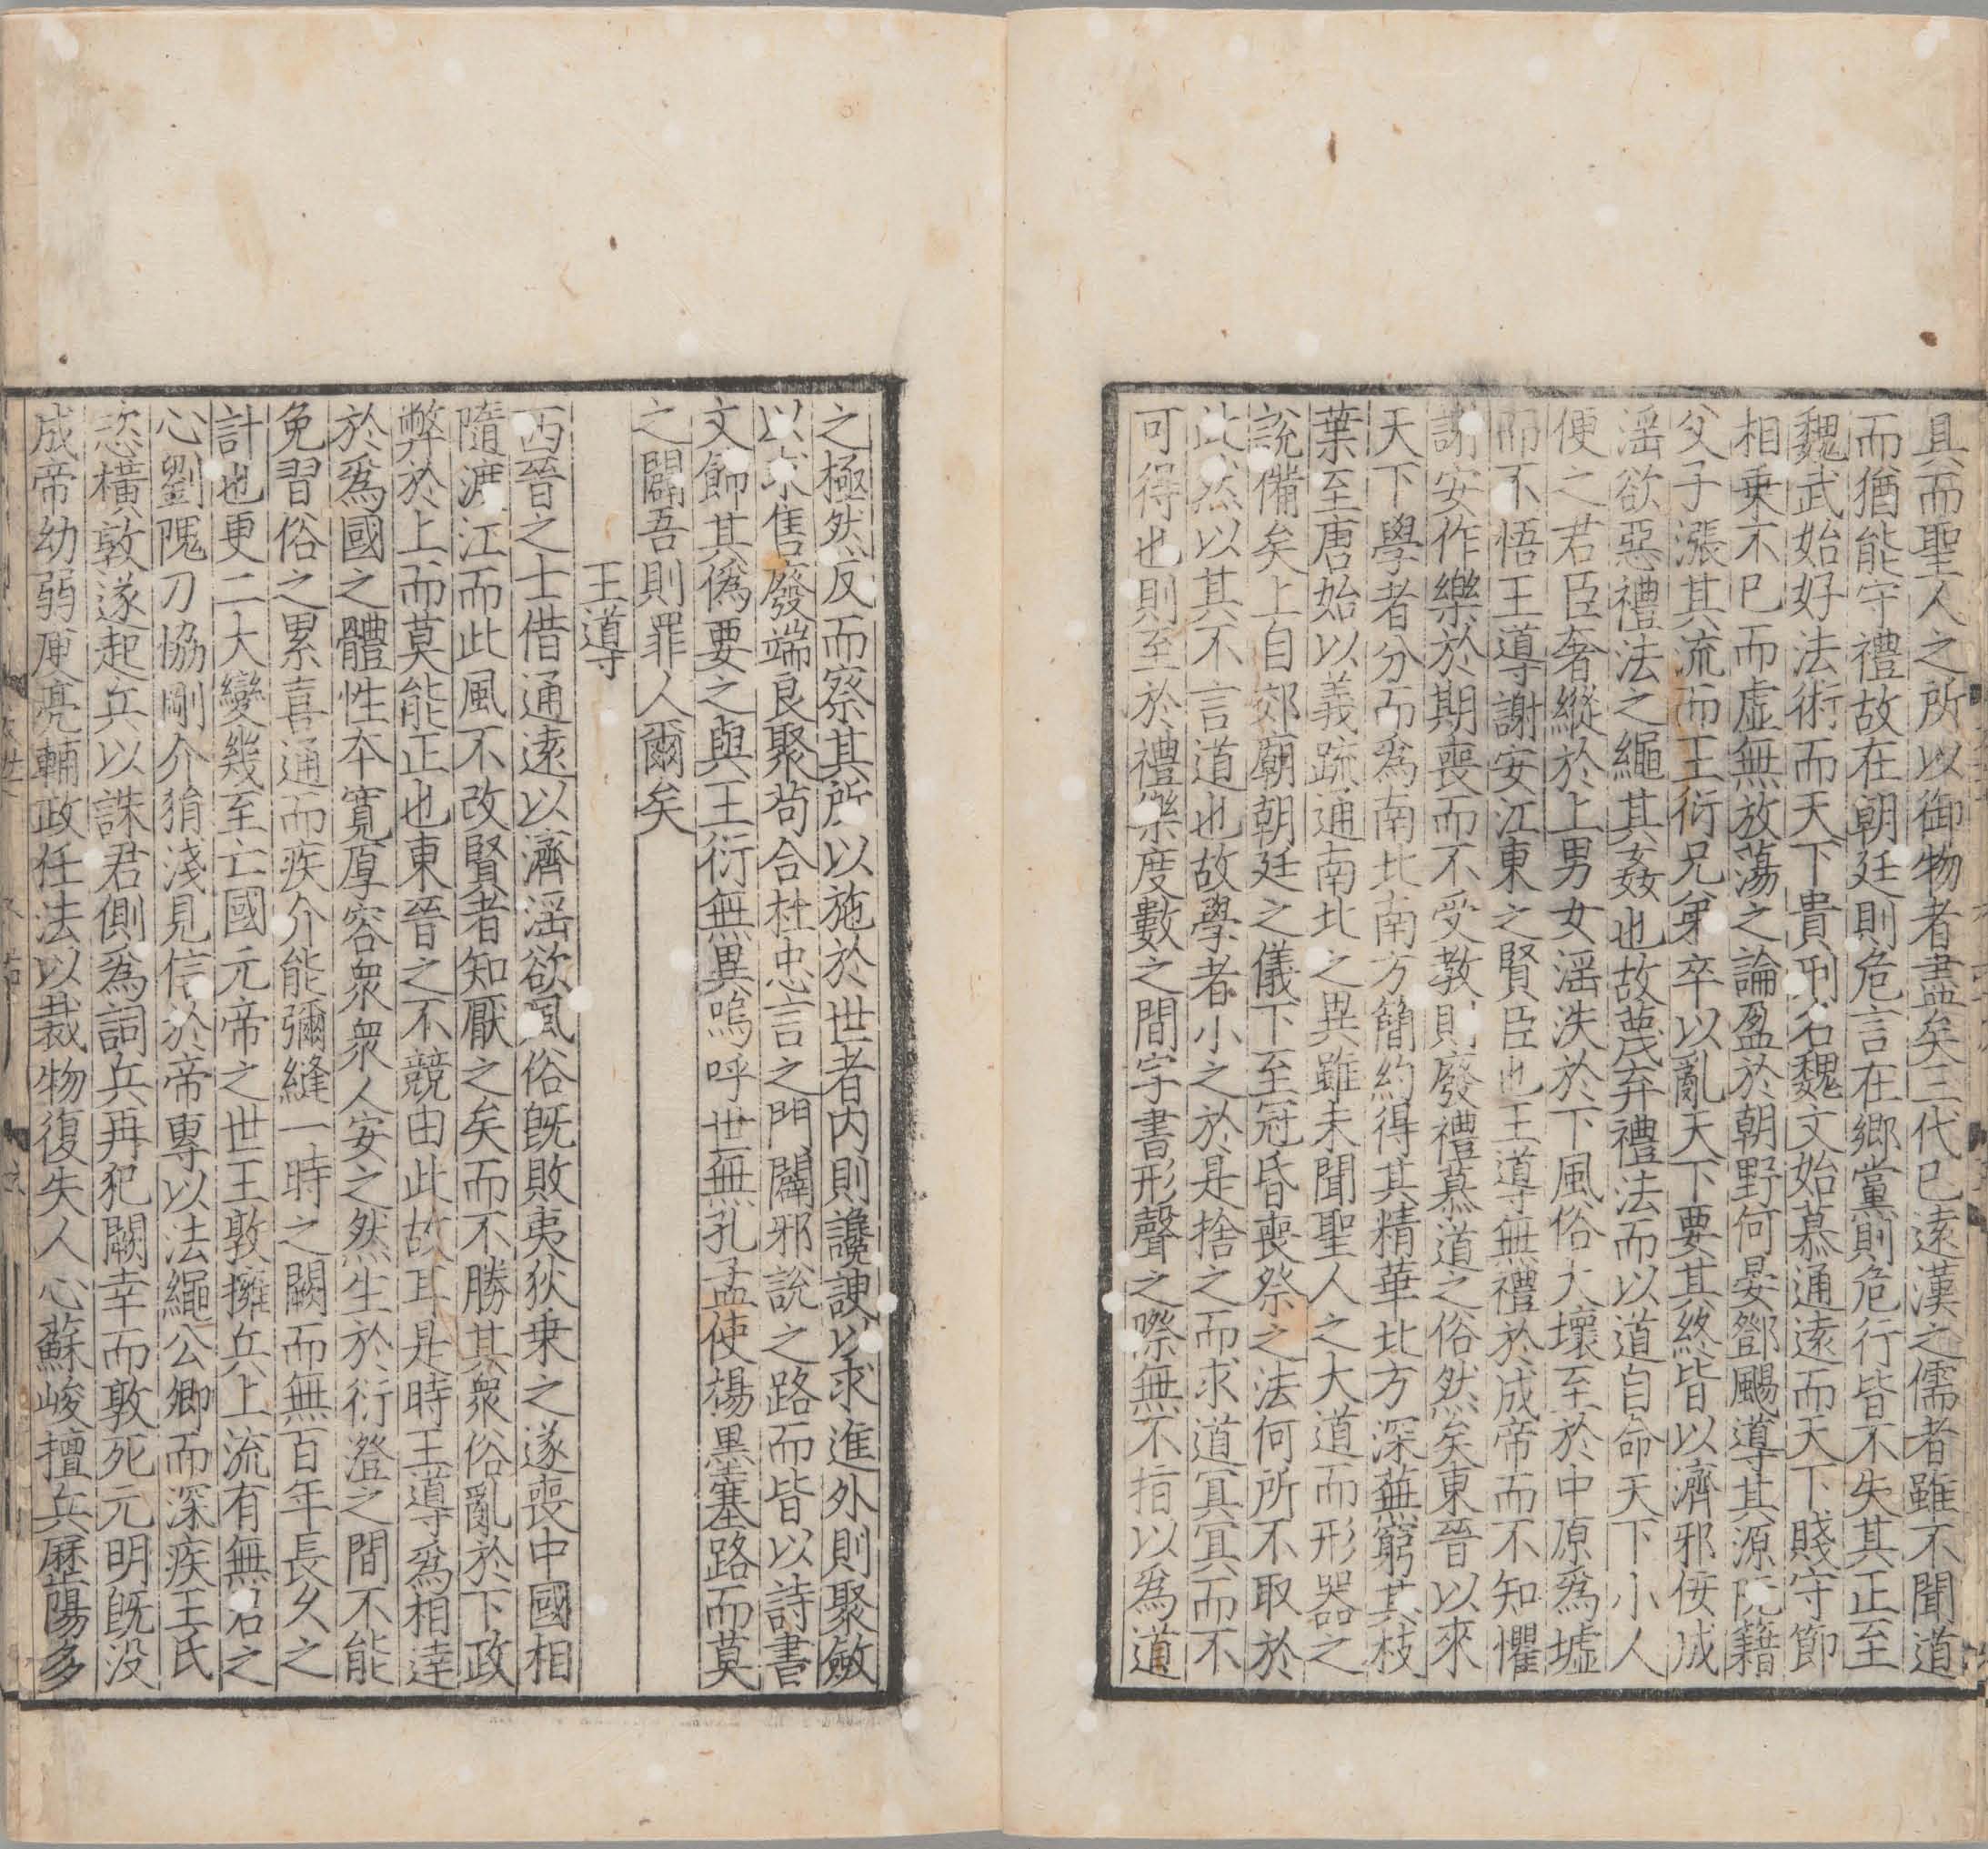 具而聖人之所以御物者盡矣三代已遠漢之儒者雖不聞道
而猶能守禮故在朝廷則危言在鄉黨則危行皆不失其正至
魏武始好法術而天下貴刑名魏文始慕通遠而天下賤守節
相乗不已而虛無放蕩之論盈於朝野何晏鄧颺導其源阮籍
父子漲其流而王衍兄弟卒以亂天下要其終皆以濟邪佞成
淫欲惡禮法之繩其姦也故蔑弃禮法而以道自命天下小人
便之若臣奢縱於上男女淫泆於下風俗大壞至於中原爲墟
而不悟王導謝安江東之賢臣也王導無禮於成帝而不知懼
謝安作樂於期喪而不受教則廢禮慕道之俗然矣東晉以來
天下學者分而爲南北南方簡約得其精華北方深蕪窮其枝
葉至唐始以義疏通南北之異雖未聞聖人之大道而形器之
說備矣上自郊廟朝廷之儀下至冠昏喪祭之法何所不取於
此然以其不言道也故學者小之於是捨之而求道冥冥而不
可得也則至於禮樂度數之間字書形聲之際無不指以爲道
之極然反而察其所以施於世者内則讒諛以求進外則聚斂
以求售廢端良聚苟合杜忠言之門闢邪說之路而皆以詩書
文飾其僞要之與王衍無異嗚呼世無孔孟使楊墨塞路而莫
之闢吾則罪人爾矣
王導
西晉之士借通遠以濟淫欲風俗旣敗夷狄乗之遂喪中國相
隨渡江而此風不改賢者知厭之矣而不勝其衆俗亂於下政
弊於上而莫能正也東晉之不競由此故耳是時王導爲相達
於爲國之體性本寬厚容衆衆人安之然生於衍澄之間不能
免習俗之累喜通而疾介能彌縫一時之闕而無百年長久之
計也更二大變幾至亡國元帝之世王敦擁兵上流有無君之
心劉隗刀協剛介狷淺見信於帝專以法繩公卿而深疾王氏
恣橫敦遂起兵以誅君側爲詞兵再犯闕幸而敦死元明旣没
成帝幼弱庾亮輔政任法以裁物復失人心蘇峻擅兵歷陽多